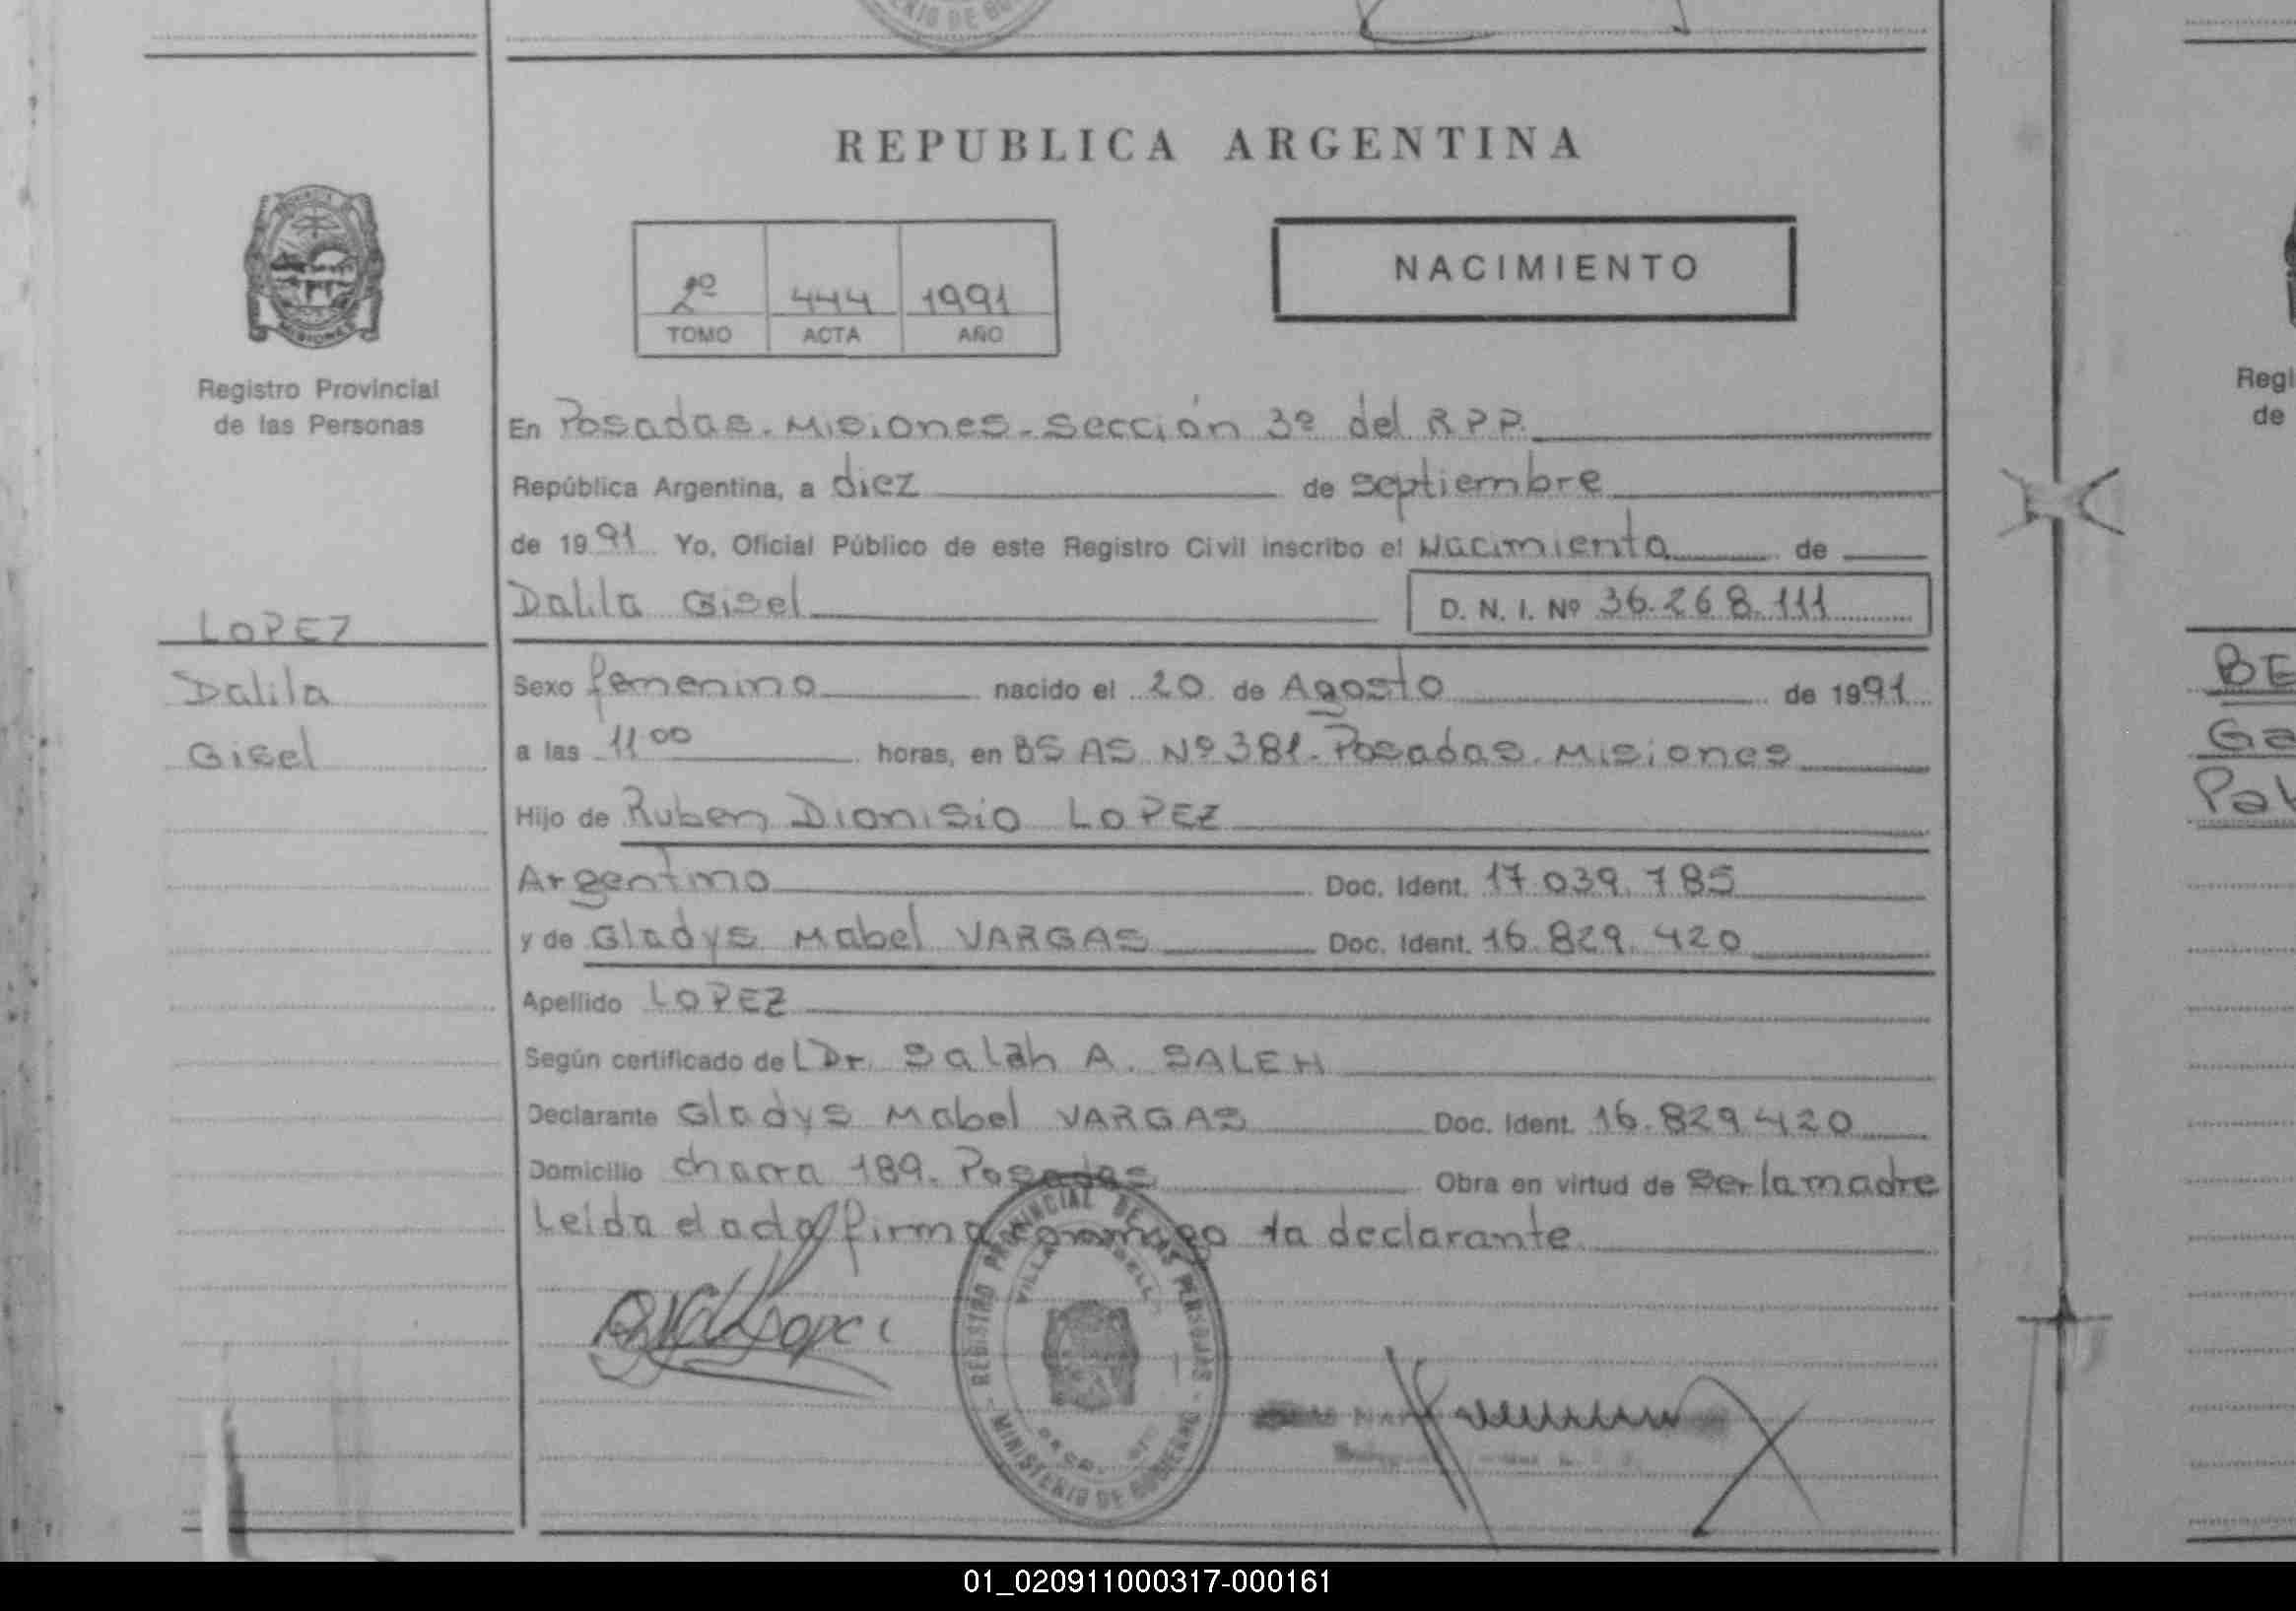 REPUBLICA ARGENTINA
NACIMIENTO
2º 444 1991
TOMO ACTA AÑO
Registro Provincial
de las Personas
LOPEZ
Dalila
Gisel
En Posadas. Misiones. Sección 3º del R P P.
República Argentina, a diez de septiembre
de 1991 Yo, Oficial Público de este Registro Civil inscribo el Nacimiento de
Dalila Gisel D. N. I. Nº 36.268.111
Sexo femenino nacido el 20 de Agosto de 1991
a las 11 00 horas, en BS AS Nº 381. Posadas. Misiones
Hijo de Ruben Dionisio LOPEZ
Argentino Doc. Ident. 17.039.785
y de Gladys Mabel VARGAS Doc. Ident. 16.829.420
Apellido LOPEZ
Según certificado de l Dr. Salah A. SALEH
Declarante Gladys Mabel VARGAS Doc. Ident. 16.829.420
Domicilio chacra 189. Posadas Obra en virtud de ser la madre
Leida el acta firma conmigo la declarante
REGISTRO PROVINCIAL DE LAS PERSONAS
MINISTERIO DE GOBIERNO
Regi
de
BE
Ga
01_020911000317-000161